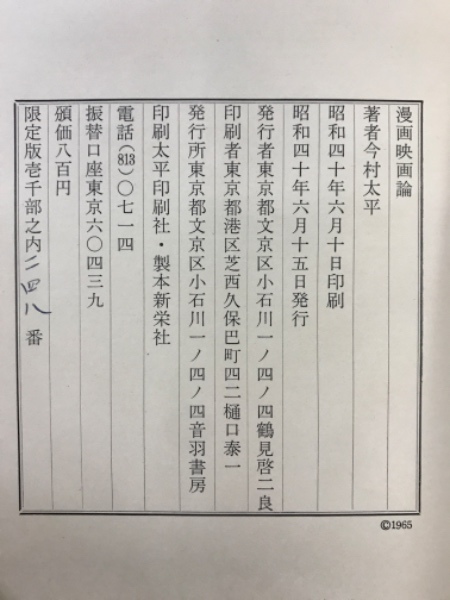 漫画映画論
著者今村太平
昭和四十年六月十日印刷
昭和四十年六月十五日発行
発行者東京都文京区小石川一ノ四ノ四鶴見啓二良
印刷者東京都港区芝西久保巴町四二樋口泰一
発行所東京都文京区小石川一ノ四ノ四音羽書房
印刷太平印刷社・製本新栄社
電話(813)〇七一四
振替口座東京六〇四三九
頒価八百円
限定版壱千部之内二四八番
©1965